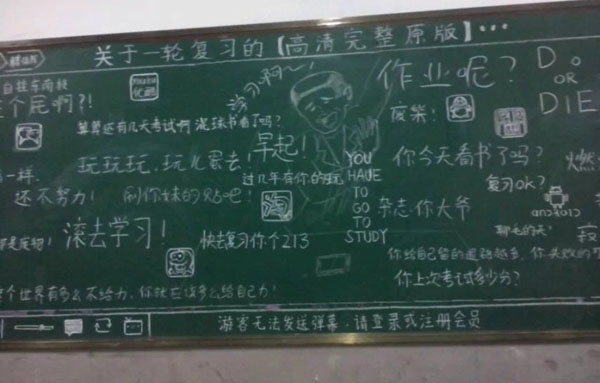 关于一轮复习的【高清完整原版】…
自挂东南枝
个屁啊?!
Youku
优酷
复习啊~!
作业呢?
DO
OR
DIE
废柴!
算算还有几天考试啊
滚球书看了吗?
早起!
玩玩玩,玩儿蛋去!
过几年有你的玩
YOU
HAVE
TO
GO
TO
STUDY
你今天看书了吗?
复习ok?
一样,
还不努力!
刷你妹的贴吧!
淘
杂志你大爷
android
聊毛的天!
滚去学习!
快去复习你个213
你上次考试多少分?
个世界有多么不给力,你就应该多么给自己力!
游客无法发送弹幕,请登录或注册会员